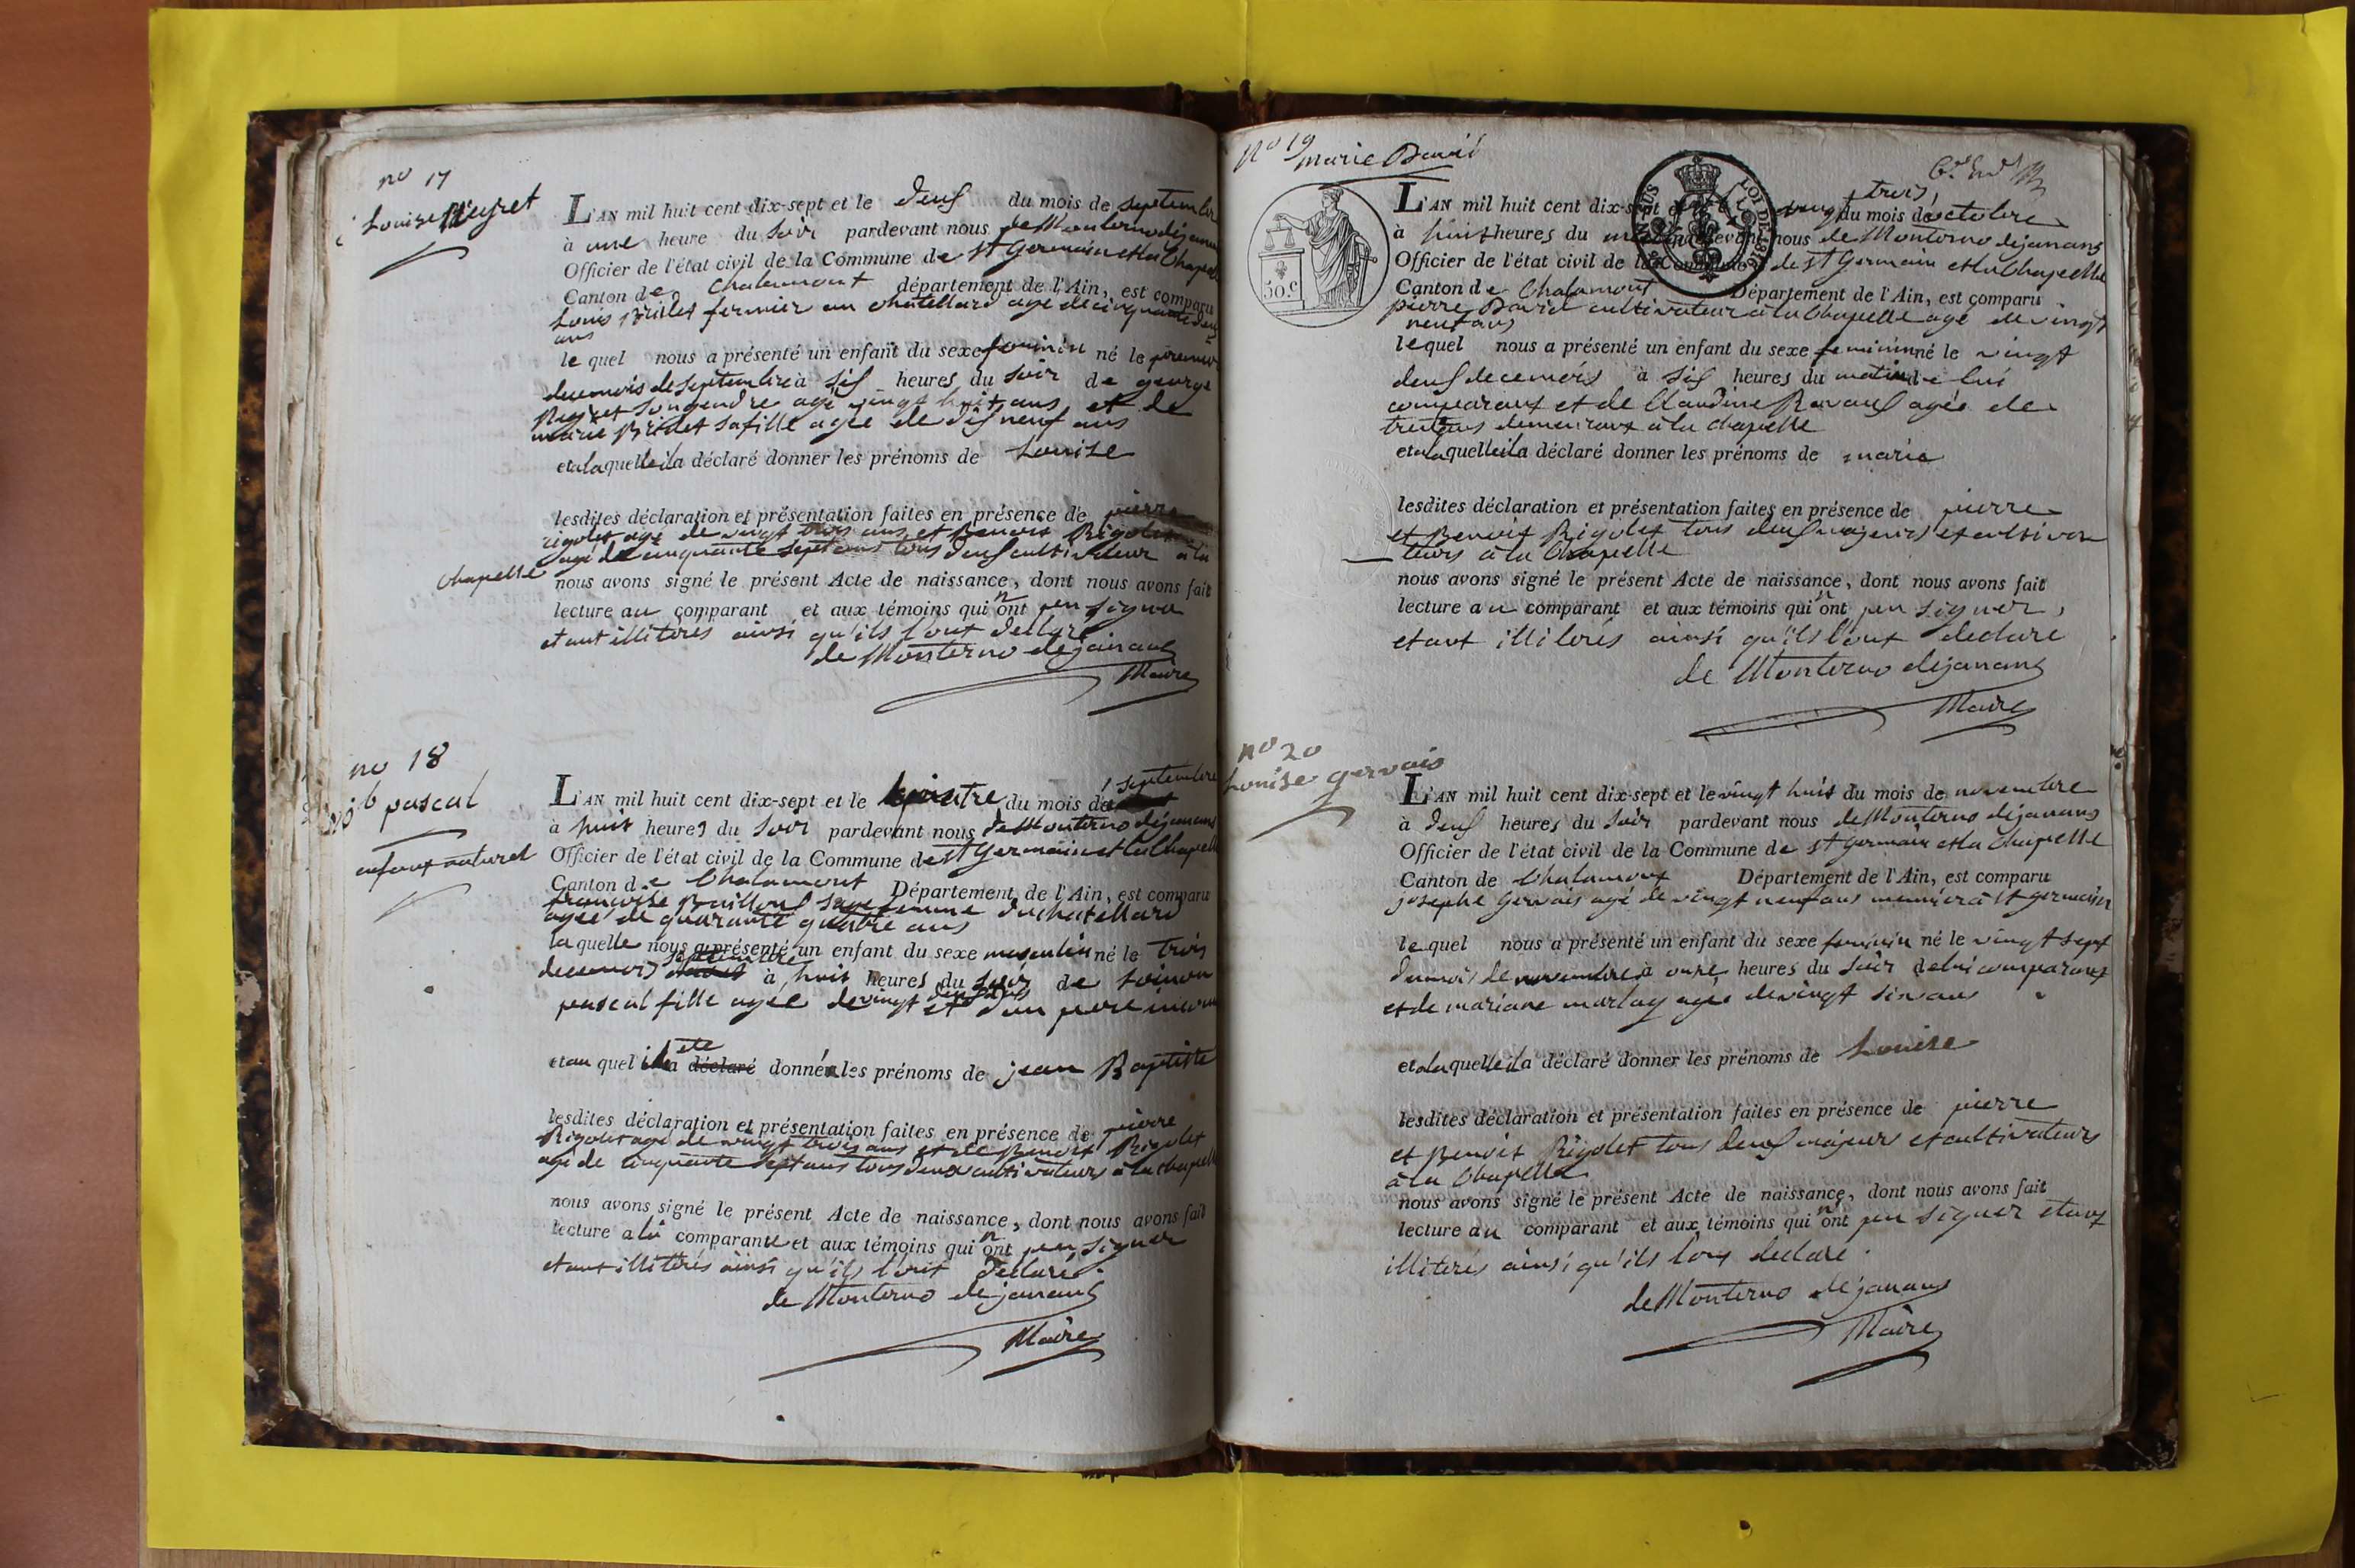 no 17
Louise Meyret
L'AN mil huit cent dix-sept et le deux du mois de septembre
à une heure du soir pardevant nous de Monterno dejanans
Officier de l'état civil de la Commune de st Germain et la Chapelle
Canton de Chalamont département de l'Ain, est comparu
Louis Bridet fermier au chatellard agé de cinquante deux
ans
le quel nous a présenté un enfant du sexe feminin né le premier
de ce mois de septembre à six heures du soir de george
son gendre agé vingt huit ans et de
marie Bridet sa fille agée de dix neuf ans
et a laquelle il a déclaré donner les prénoms de Louise
lesdites déclaration et présentation faites en présence de pierre
rigolet agé de vingt trois ans et Benoit Rigolet
agé de cinquante sept ans tous deux cultivateur à la
chapelle
nous avons signé le présent Acte de naissance, dont nous avons fait
lecture au comparant et aux témoins qui n'ont peu signer
etant illiterés ainsi qu'ils l'ont declaré
de Monterno dejanans
Maire
no 18
j b pascal
enfant naturel
L'AN mil huit cent dix-sept et le quatre du mois de septembre
à huit heures du soir pardevant nous de Monterno dejanans
Officier de l'état civil de la Commune de st Germain et la Chapelle
Canton de Chalamont Département de l'Ain, est comparu
françoise Bailloux sage femme du chatellard
agée de quarante quatre ans
la quelle nous a présenté un enfant du sexe masculin né le trois
de ce mois septembre à huit heures du soir de
pascal fille agée de vingt deux ans et d'un pere inconnu
et au quel il a été déclaré donné les prénoms de jean Baptiste
lesdites déclaration et présentation faites en présence de pierre
Rigolet agé de vingt trois ans et de Benoit Rigolet
agé de cinquante sept ans tous deux cultivateurs à la chapelle
nous avons signé le présent Acte de naissance, dont nous avons fait
lecture a la comparante et aux témoins qui n'ont peu signer
etant illiterés ainsi qu'ils l'ont declaré.
de Monterno dejanans
Maire
no 19
marie David
50.c
LOI DE 1816
L'AN mil huit cent dix-sept et le vingt trois du mois d'octobre
à huit heures du matin pardevant nous de Monterno dejanans
Officier de l'état civil de la Commune de st Germain et la Chapelle
Canton de Chalamont Département de l'Ain, est comparu
pierre David cultivateur à la Chapelle agé de vingt
neuf ans
lequel nous a présenté un enfant du sexe feminin né le vingt
deux de ce mois à six heures du matin de lui
comparant et de Claudine Ravaux agée de
trente ans demeurant à la chapelle
et a laquelle il a déclaré donner les prénoms de marie
lesdites déclaration et présentation faites en présence de pierre
et Benoit Rigolet tous deux majeurs et cultiva
teurs à la Chapelle
nous avons signé le présent Acte de naissance, dont nous avons fait
lecture au comparant et aux témoins qui n'ont peu signer,
etant illiterés ainsi qu'ils l'ont declaré
de Monterno dejanans
Maire
no 20
Louise gervais
L'AN mil huit cent dix-sept et le vingt huit du mois de novembre
à deux heures du soir pardevant nous de Monterno dejanans
Officier de l'état civil de la Commune de st germain et la Chapelle
Canton de Chalamont Département de l'Ain, est comparu
josephe Gervais agé de vingt neuf ans meunier à st germain
le quel nous a présenté un enfant du sexe feminin né le vingt sept
du mois de novembre à onze heures du soir de lui comparant
et de mariane marlay agée de vingt six ans
et a laquelle il a déclaré donner les prénoms de Louise
lesdites déclaration et présentation faites en présence de pierre
et Benoit Rigolet tous deux majeurs et cultivateurs
à la Chapelle
nous avons signé le présent Acte de naissance, dont nous avons fait
lecture au comparant et aux témoins qui n'ont peu signer etant
illiterés ainsi qu'ils l'ont declaré.
de Monterno dejanans
Maire